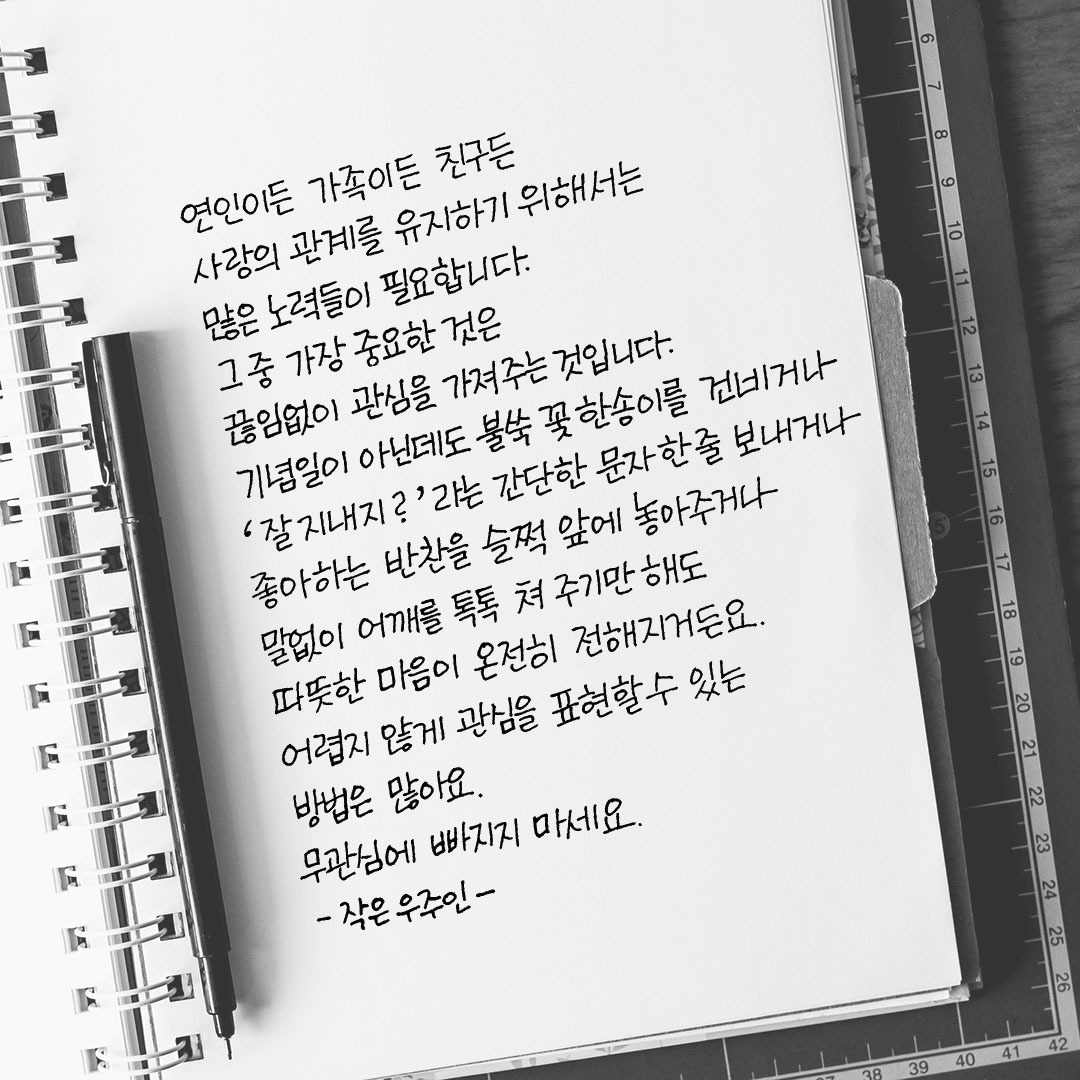 연인이든 가족이든 친구든
사랑의 관계를 유지하기 위해서는
많은 노력들이 필요합니다.
그 중 가장 중요한 것은
끊임없이 관심을 가져주는 것입니다.
기념일이 아닌데도 불쑥 꽃 한송이를 건네거나
'잘 지내지?'라는 간단한 문자 한 줄 보내거나
좋아하는 반찬을 슬쩍 앞에 놓아주거나
말없이 어깨를 톡톡 쳐 주기만 해도
따뜻한 마음이 온전히 전해지거든요.
어렵지 않게 관심을 표현할 수 있는
방법은 많아요.
무관심에 빠지지 마세요.
- 작은 우주인 -
6
7
8
9
10
11
12
13
14
15
16
17
18
19
20
21
22
23
24
25
26
38 39 40 41 42